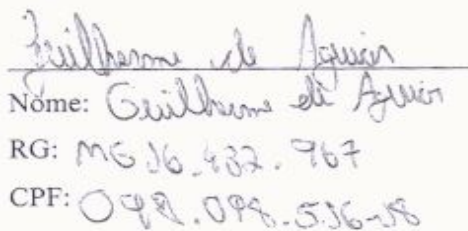 Guilherme de Aguiar
Nome: Guilherme de Aguiar
RG: MG 16.432.967
CPF: 098.098.536-18